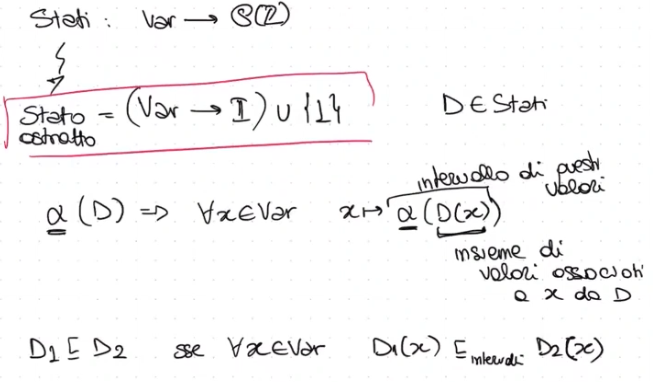 Stati : Var → ℘(ℤ)
Stato = (Var → 𝕀) ∪ {⊥}
astratto
D ∈ Stati
intervallo di questi
valori
α (D) ⇒ ∀x∈Var x ↦ α (D(x))
insieme di
valori associati
a x da D
D₁ ⊑ D₂ sse ∀x∈Var D₁(x) ⊑intervalli D₂(x)